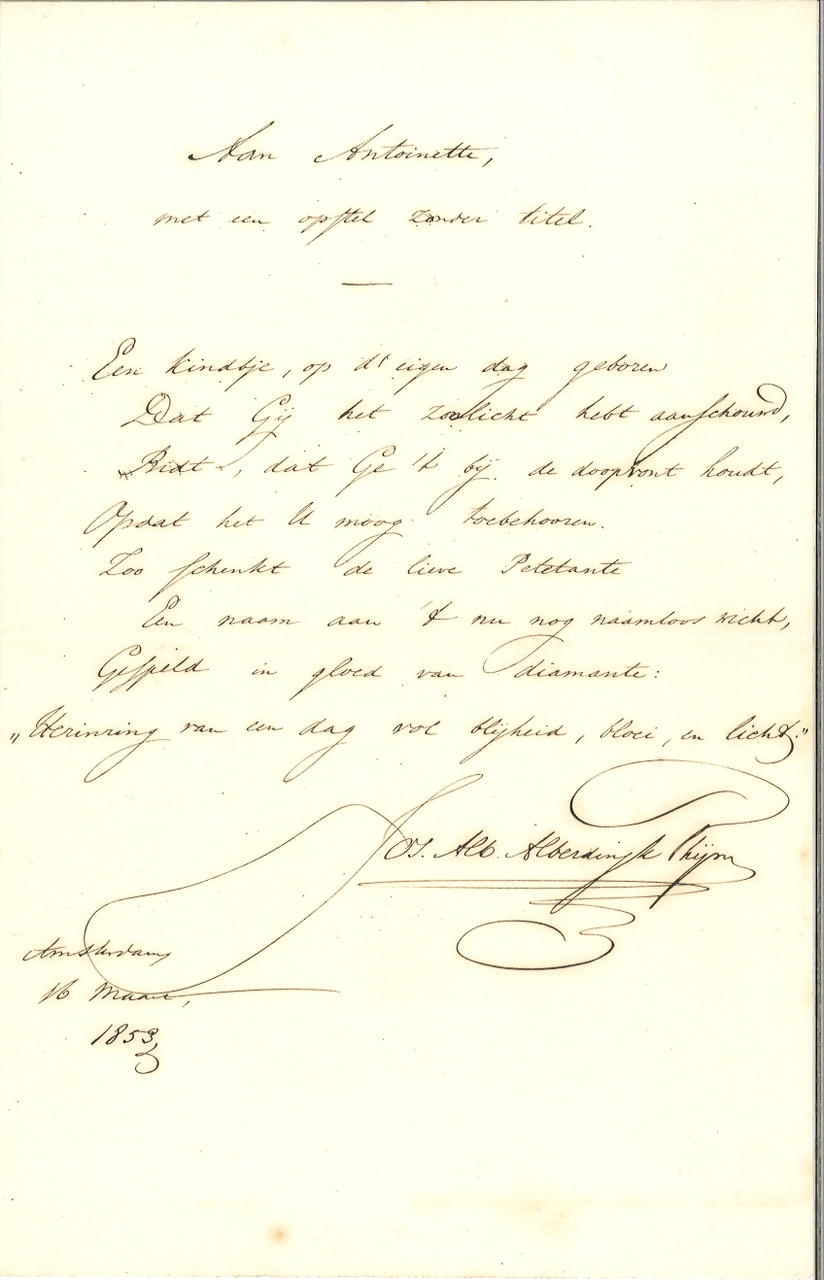 Aan Antoinette,
met een opstel zonder titel.
Een kindtje, op d' eigen dag geboren
Dat Gij het zonlicht hebt aanschouwd,
Bidt U, dat Ge 't bij de doopvont houdt,
Opdat het U moog toebehooren.
Zoo schenkt de lieve Petetante
Een naam aan 't nu nog naamloos wicht,
Gespeld in gloed van diamante:
„Herinring van een dag vol blijheid, bloei, en licht."
Jos. Alb. Alberdingk Thijm
Amsterdam,
16 Maart,
1853